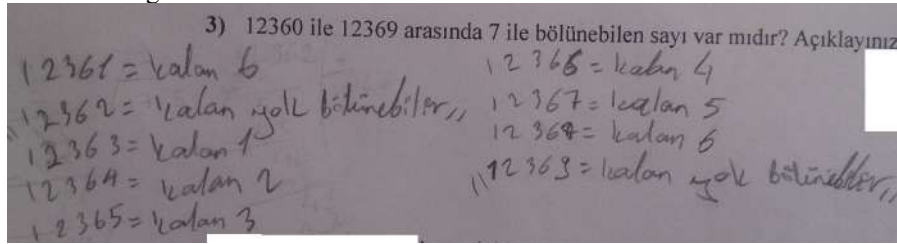 3) 12360 ile 12369 arasında 7 ile bölünebilen sayı var mıdır? Açıklayınız
12361 = kalan 6
12362 = kalan yok bölünebiler,,
12363 = kalan 1
12364 = kalan 2
12365 = kalan 3
12366 = kalan 4
12367 = kalan 5
12368 = kalan 6
12369 = kalan yok bölünebiler,,